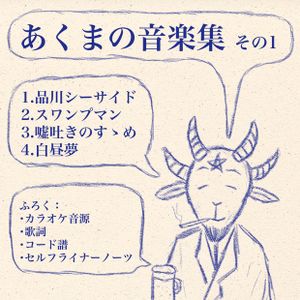 あくまの音楽集 その1
1.品川シーサイド
2.スワンプマン
3.嘘吐きのすゝめ
4.白昼夢
ふろく：
・カラオケ音源
・歌詞
・コード譜
・セルフライナーノーツ